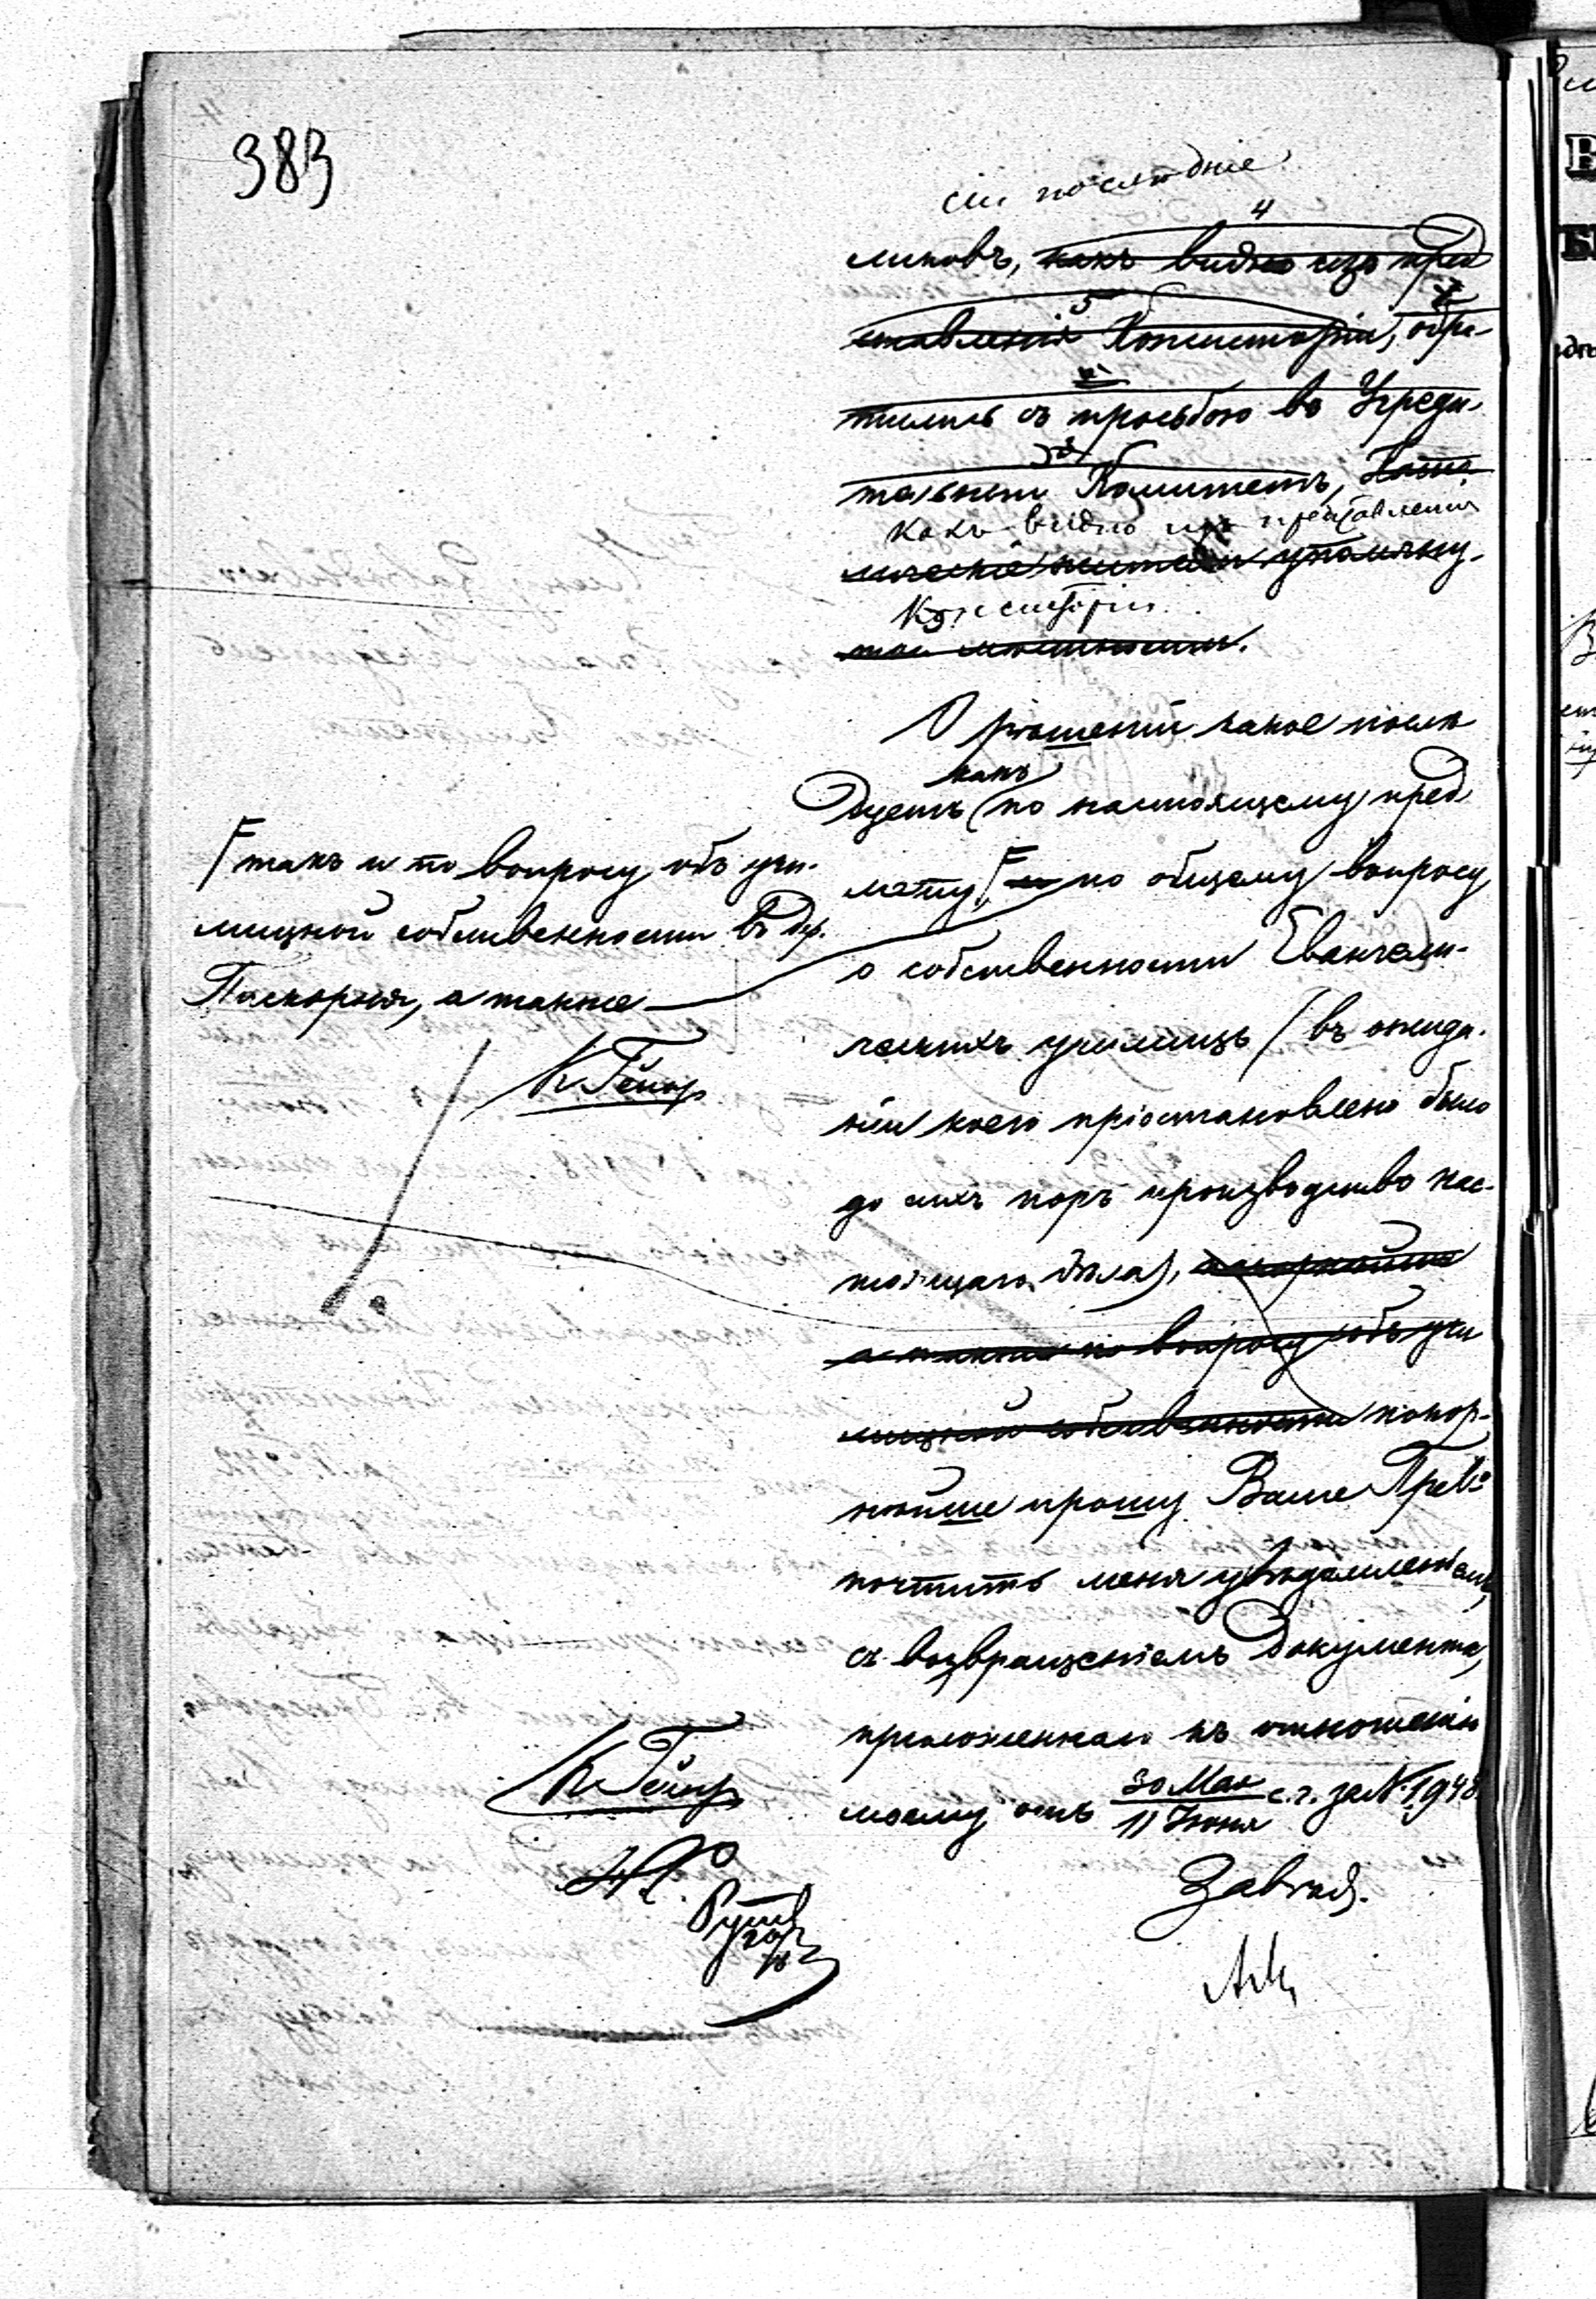 383
сіи послѣдніе
4
ликовъ, какъ видно изъ пред
5
ставленія Консисторіи, обра-
тились съ просьбою въ Учреди-
тельный Комитетъ,
какъ видно изъ представленія
жители упомяну-
Консисторіи
той мѣстности.
О рѣшеніи какое послѣ
какъ
дуетъ (по настоящему пред
мету, и по общему вопросу
о собственности Евангели-
ческихъ училищъ (въ ожида-
ніи коего пріостановлено было
до сихъ поръ производство нас-
тоящаго дѣла),
а также по вопросу объ учи
лищной собственности покор-
нѣйше прошу Ваше Прев-о
почтить меня увѣдомленіемъ,
съ возвращеніемъ документа,
приложеннаго къ отношенію
моему отъ 30 Мая / 11 Іюня с. г. за № 1948
Завѣд.
такъ и по вопросу объ учи-
лищной собственности въ дер.
а также